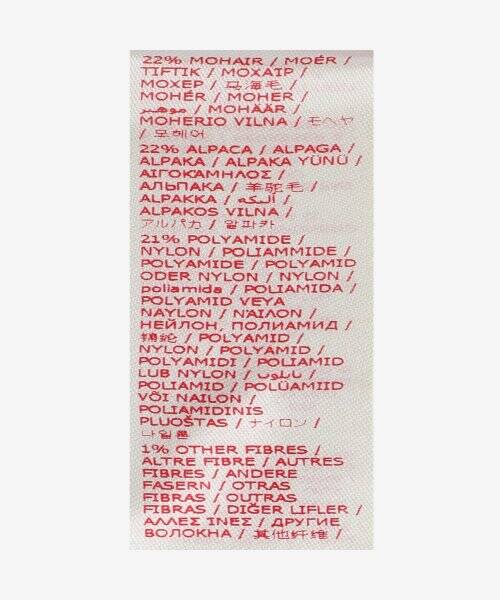 22% MOHAIR / MOÉR /
TIFTIK / ΜΟΧΑΙΡ /
МОХЕР / 马海毛 /
MOHÉR / MOHER /
موهير / MOHÄÄR /
MOHERIO VILNA / モヘヤ
/ 모헤어
22% ALPACA / ALPAGA /
ALPAKA / ALPAKA YÜNÜ /
ΑΙΓΟΚΑΜΗΛΟΣ /
АЛЬПАКА / 羊驼毛 /
ALPAKKA / ألبكه /
ALPAKOS VILNA /
アルパカ / 알파카
21% POLYAMIDE /
NYLON / POLIAMMIDE /
POLYAMIDE / POLYAMID
ODER NYLON / NYLON /
poliamida / POLIAMIDA /
POLYAMID VEYA
NAYLON / ΝΑΙΛΟΝ /
НЕЙЛОН, ПОЛИАМИД /
锦纶 / POLYAMID /
NYLON / POLYAMID /
POLYAMIDI / POLIAMID
LUB NYLON / نايلون /
POLIAMID / POLÜAMIID
VÕI NAILON /
POLIAMIDINIS
PLUOŠTAS / ナイロン /
나일론
1% OTHER FIBRES /
ALTRE FIBRE / AUTRES
FIBRES / ANDERE
FASERN / OTRAS
FIBRAS / OUTRAS
FIBRAS / DIĞER LIFLER /
ΑΛΛΕΣ ΊΝΕΣ / ДРУГИЕ
ВОЛОКНА / 其他纤维 /